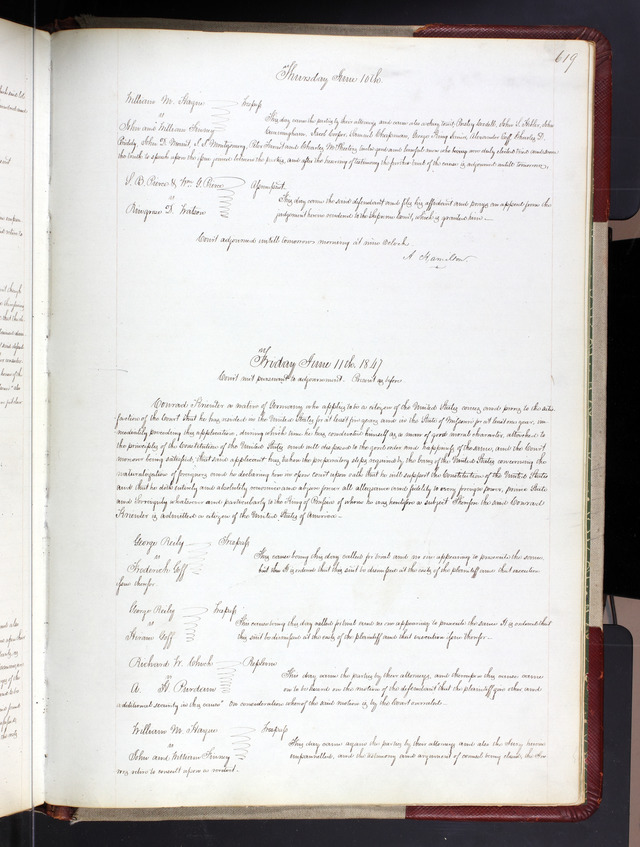 619
Thursday June 10th
William M. Hague
vs
John and William Finney
Trespass
This day came the parties by their attorneys and came also a Jury to wit,
John D. Merrit, J. J. Montgomery,
the truth to speak upon the issue joined between the parties, and after the hearing of testimony the further trial of the cause is adjourned untill tomorrow
& Wm. G.
vs
Assumpsit
This day came the said defendant and files his affidavit and prays an appeal from the
judgment herein rendered to the Supreme Court, which is granted him
Court adjourned untill tomorrow morning at nine Oclock
A. Hamilton
Friday June 11th 1847
Court met pursuant to adjournment. Present as before
Conrad a native of Germany who applies to be a citizen of the United States comes and proves to the satis
faction of the Court that he has resided in the United States for at least five years and in the State of Missouri for at least one year, im
mediately preceding this application, during which time he has conducted himself as a man of good moral character, attached to
the principles of the Constitution of the United States and well disposed to the good order and happiness of the same, and the Court
moreover being satisfied, that said applicant has taken the preparatory steps required by the laws of the United States concerning the
naturalization of foreigners and he declaring here in open Court upon oath that he will support the Constitution of the United States
and that he does entirely and absolutely renounce and abjure forever all allegiance and fidelity to every foreign power, prince State
and Sovereignty whatever and particularly to the King of Prussia of whom he was heretofore a subject Therefore the said Conrad
is admitted a citizen of the United States of America
George Reily
vs
Frederick Goff
Trespass
This cause being this day called for trial and no one appearing to prosecute the same
it is ordered that this suit be dismissed at the costs of the plaintiff and that execution
issue therefor
George Reily
vs
Hiram Goff
Trespass
This cause being this day called for trial and no one appearing to prosecute the same It is ordered that
this suit be dismissed at the costs of the plaintiff and that execution issue therefor
Richard W.
vs
A. H.
Replevin
This day came the parties by their attorneys, and thereupon this cause came
on to be heard on the motion of the defendant that the plaintiff give other and
additional security in this cause On consideration whereof the said motion is by the Court overruled
William M. Hague
vs
John and William Finney
Trespass
This day came again the parties by their attorneys and also the Jury herein
empannelled, and the testimony and argument of counsel being closed, the Ju
rors retire to consult upon a verdict.